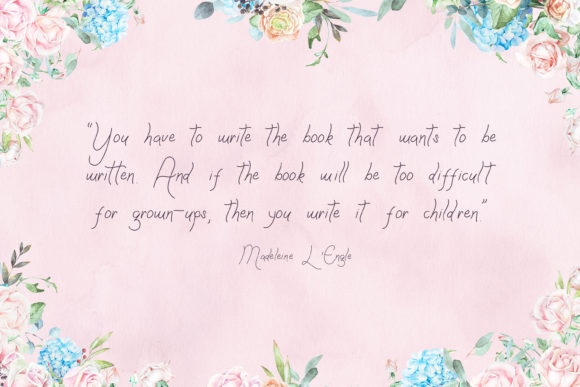 “You have to write the book that wants to be
written. And if the book will be too difficult
for grown-ups, then you write it for children.”
Madeleine L'Engle